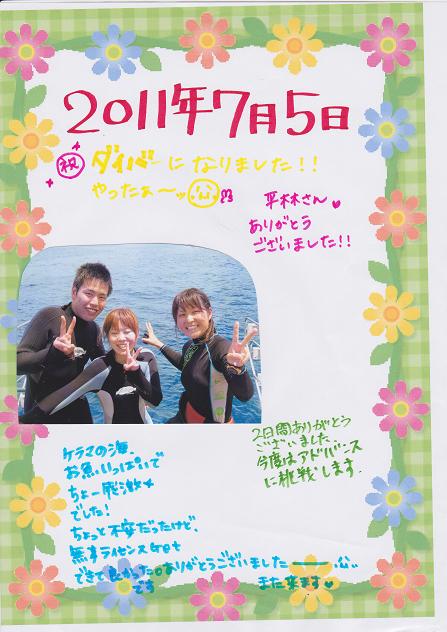 2011年7月5日
祝 ダイバーになりました!!
やったぁ〜ッ
平林さん
ありがとう
ございました!!
2日間ありがとう
ございました
今度はアドバンス
に挑戦します。
ケラマの海、
お魚いっぱいで
ちょー感激
でした!
ちょっと不安だったけど、
無事ライセンスGet
できて良かったです ありがとうございました
また来ます